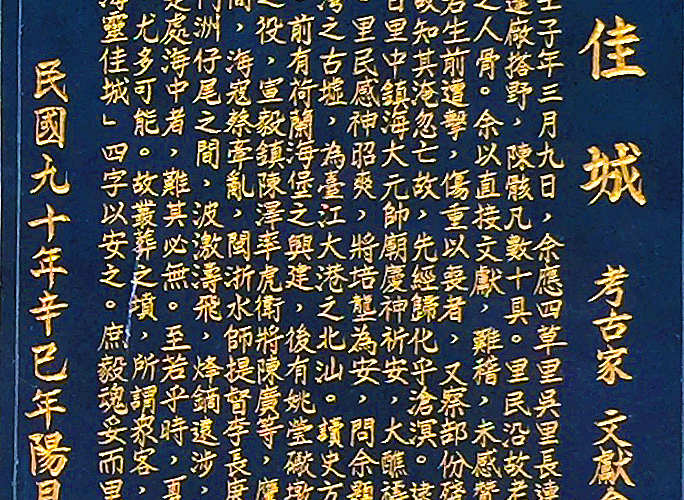 佳城 考古家 文獻
壬子年三月九日，余應四草里吳里長連
蓬廠搭野，陳骸凡數十具。里民沿故老
之人骨。余以直接文獻，難稽，未感
君生前遭擊，傷重以喪者，又察部份殘
故知其淹忽亡故，先經歸化乎滄溟。逮
日里中鎮海大元帥廟慶神祈安，大醮
。里民感神昭爽，將培壟為安，問余題
灣之古墟，為臺江大港之北汕。讀史方
前有荷蘭海堡之興建，後有姚瑩礮墩
之役，宣毅鎮陳澤率虎衛將陳廣等，
間，海寇蔡牽亂，閩浙水師提督李長庚
洲仔尾之間，波激濤飛，烽鏑遠涉，
是處海中者，難其必無。至若乎時，
尤多可能。故叢葬之墳，所謂眾客，
海靈佳城」四字以安之。庶毅魂妥而里
民國九十年辛巳年陽月